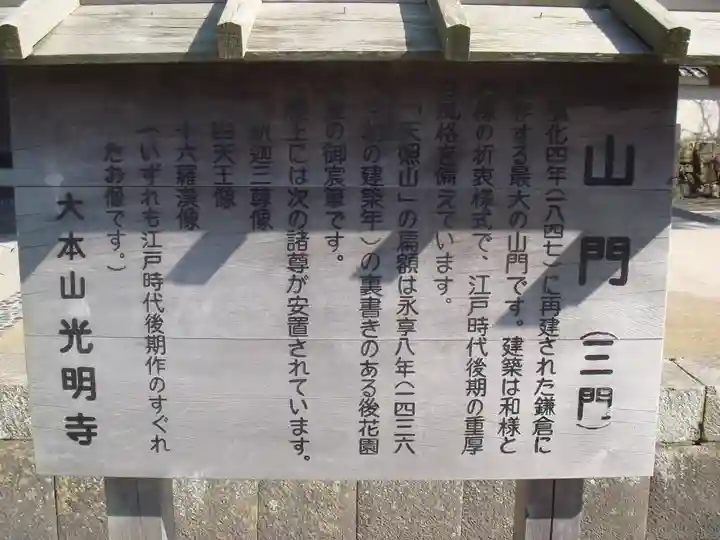 山門(三門)
弘化四年(一八四七)に再建された鎌倉に
存する最大の山門です。建築は和様と
様の折衷様式で、江戸時代後期の重厚
風格を備えています。
「天照山」の扁額は永享八年(一四三六
初の建築年)の裏書きのある後花園
皇の御宸筆です。
上には次の諸尊が安置されています。
釈迦三尊像
四天王像
十六羅漢像
(いずれも江戸時代後期作のすぐれ
たお像です。)
大本山光明寺